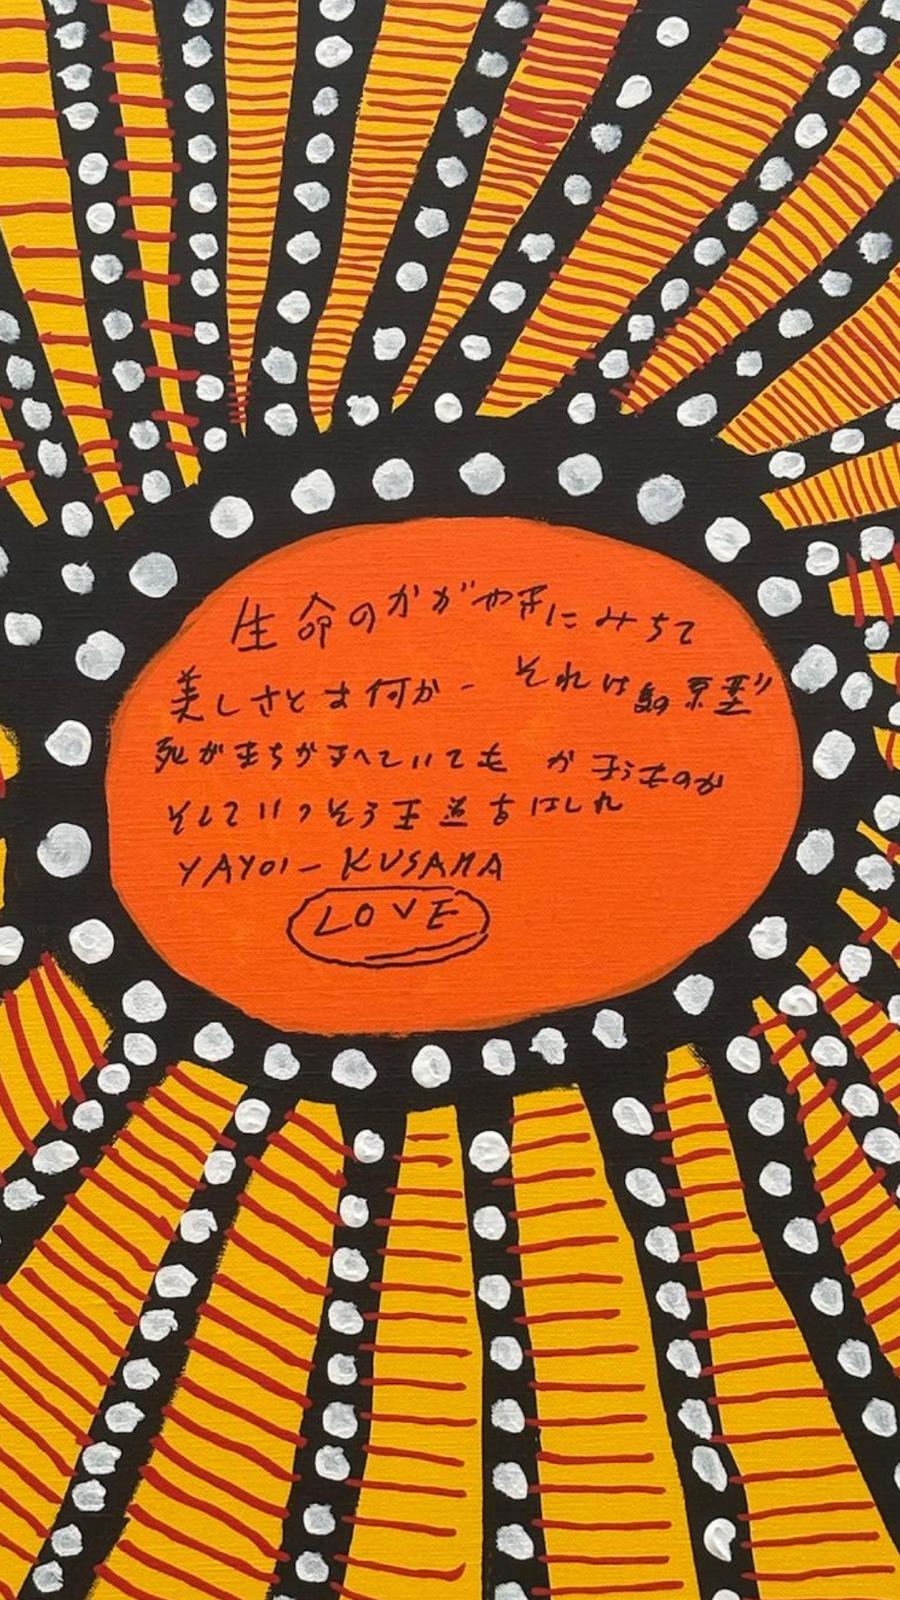 生命のかがやきにみちて
美しさとは何か-それは
死がまちかまへていても かまうものか
そしていっそう王道をはしれ
YAYOI-KUSAMA
LOVE